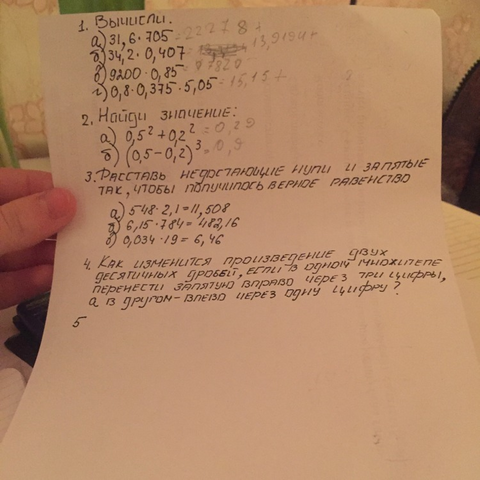 1. Вычисли.
а) 31,6·705 = 22278 +
б) 34,2·0,407 = 13,9194 +
в) 9200·0,85 = 7820
г) 0,8·0,375·5,05 = 15,15 +
2. Найди значение:
а) 0,5² + 0,2² = 0,29
б) (0,5 - 0,2)³ = 0,9
3. Расставь недостающие нули и запятые
так, чтобы получилось верное равенство
а) 548·2,1 = 11,508
б) 6,15·784 = 482,16
в) 0,034·19 = 6,46
4. Как изменится произведение двух
десятичных дробей, если в одном множителе
перенести запятую вправо через три цифры,
а в другом - влево через одну цифру?
5